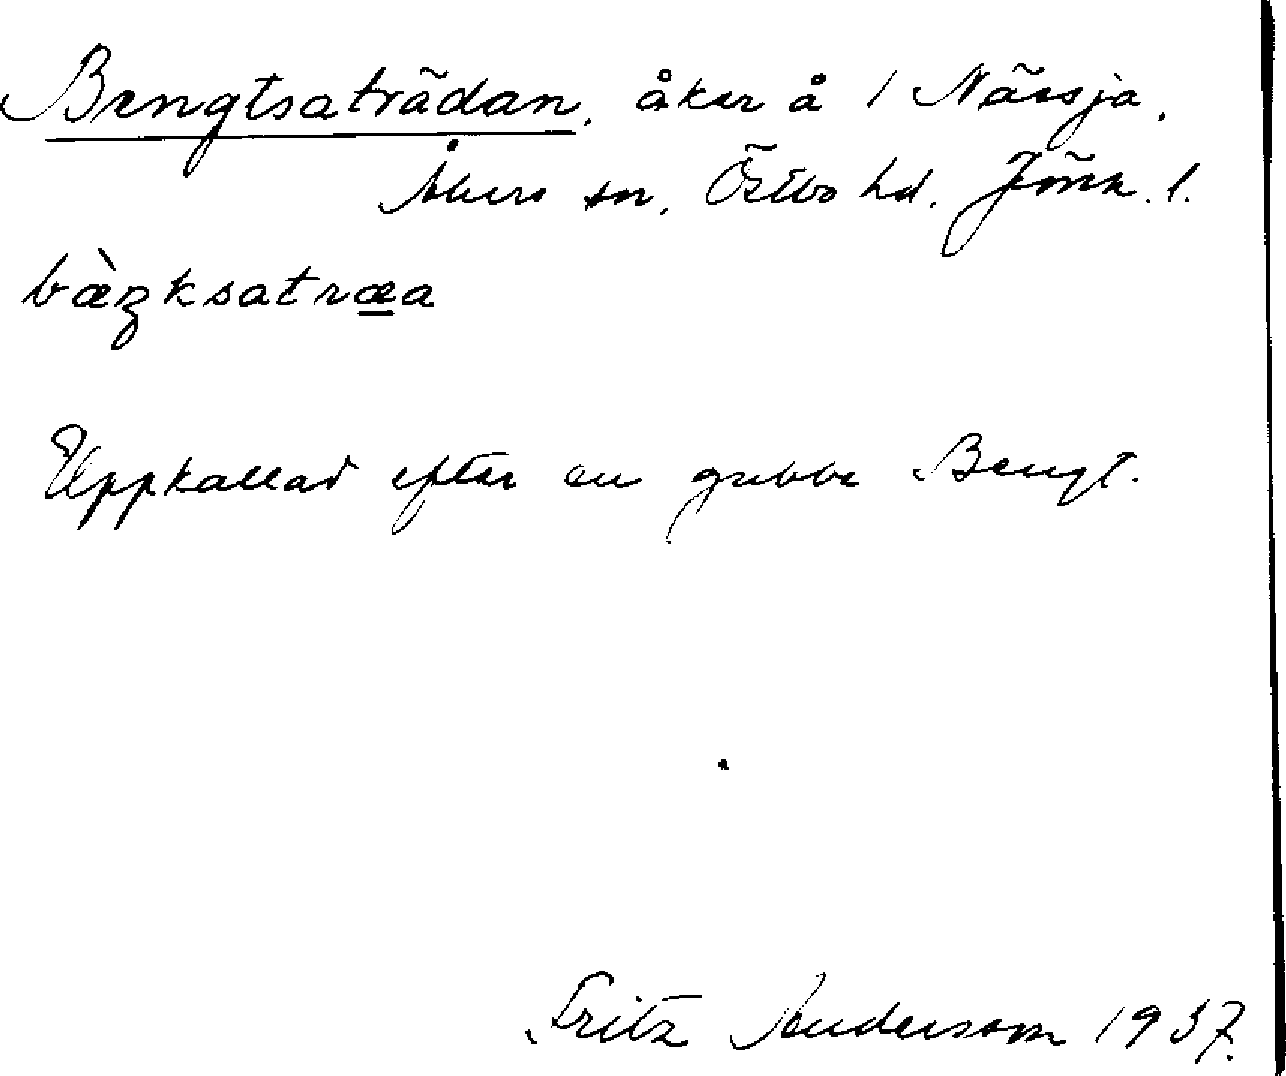 Bengtsaträdan, åker å 1 Nässja,
Åkers sn, Östbo hd. Jönk. l.
bæ̀ŋksatræa
Uppkallad efter en gubbe Bengt.
Fritz Anderson 1937.